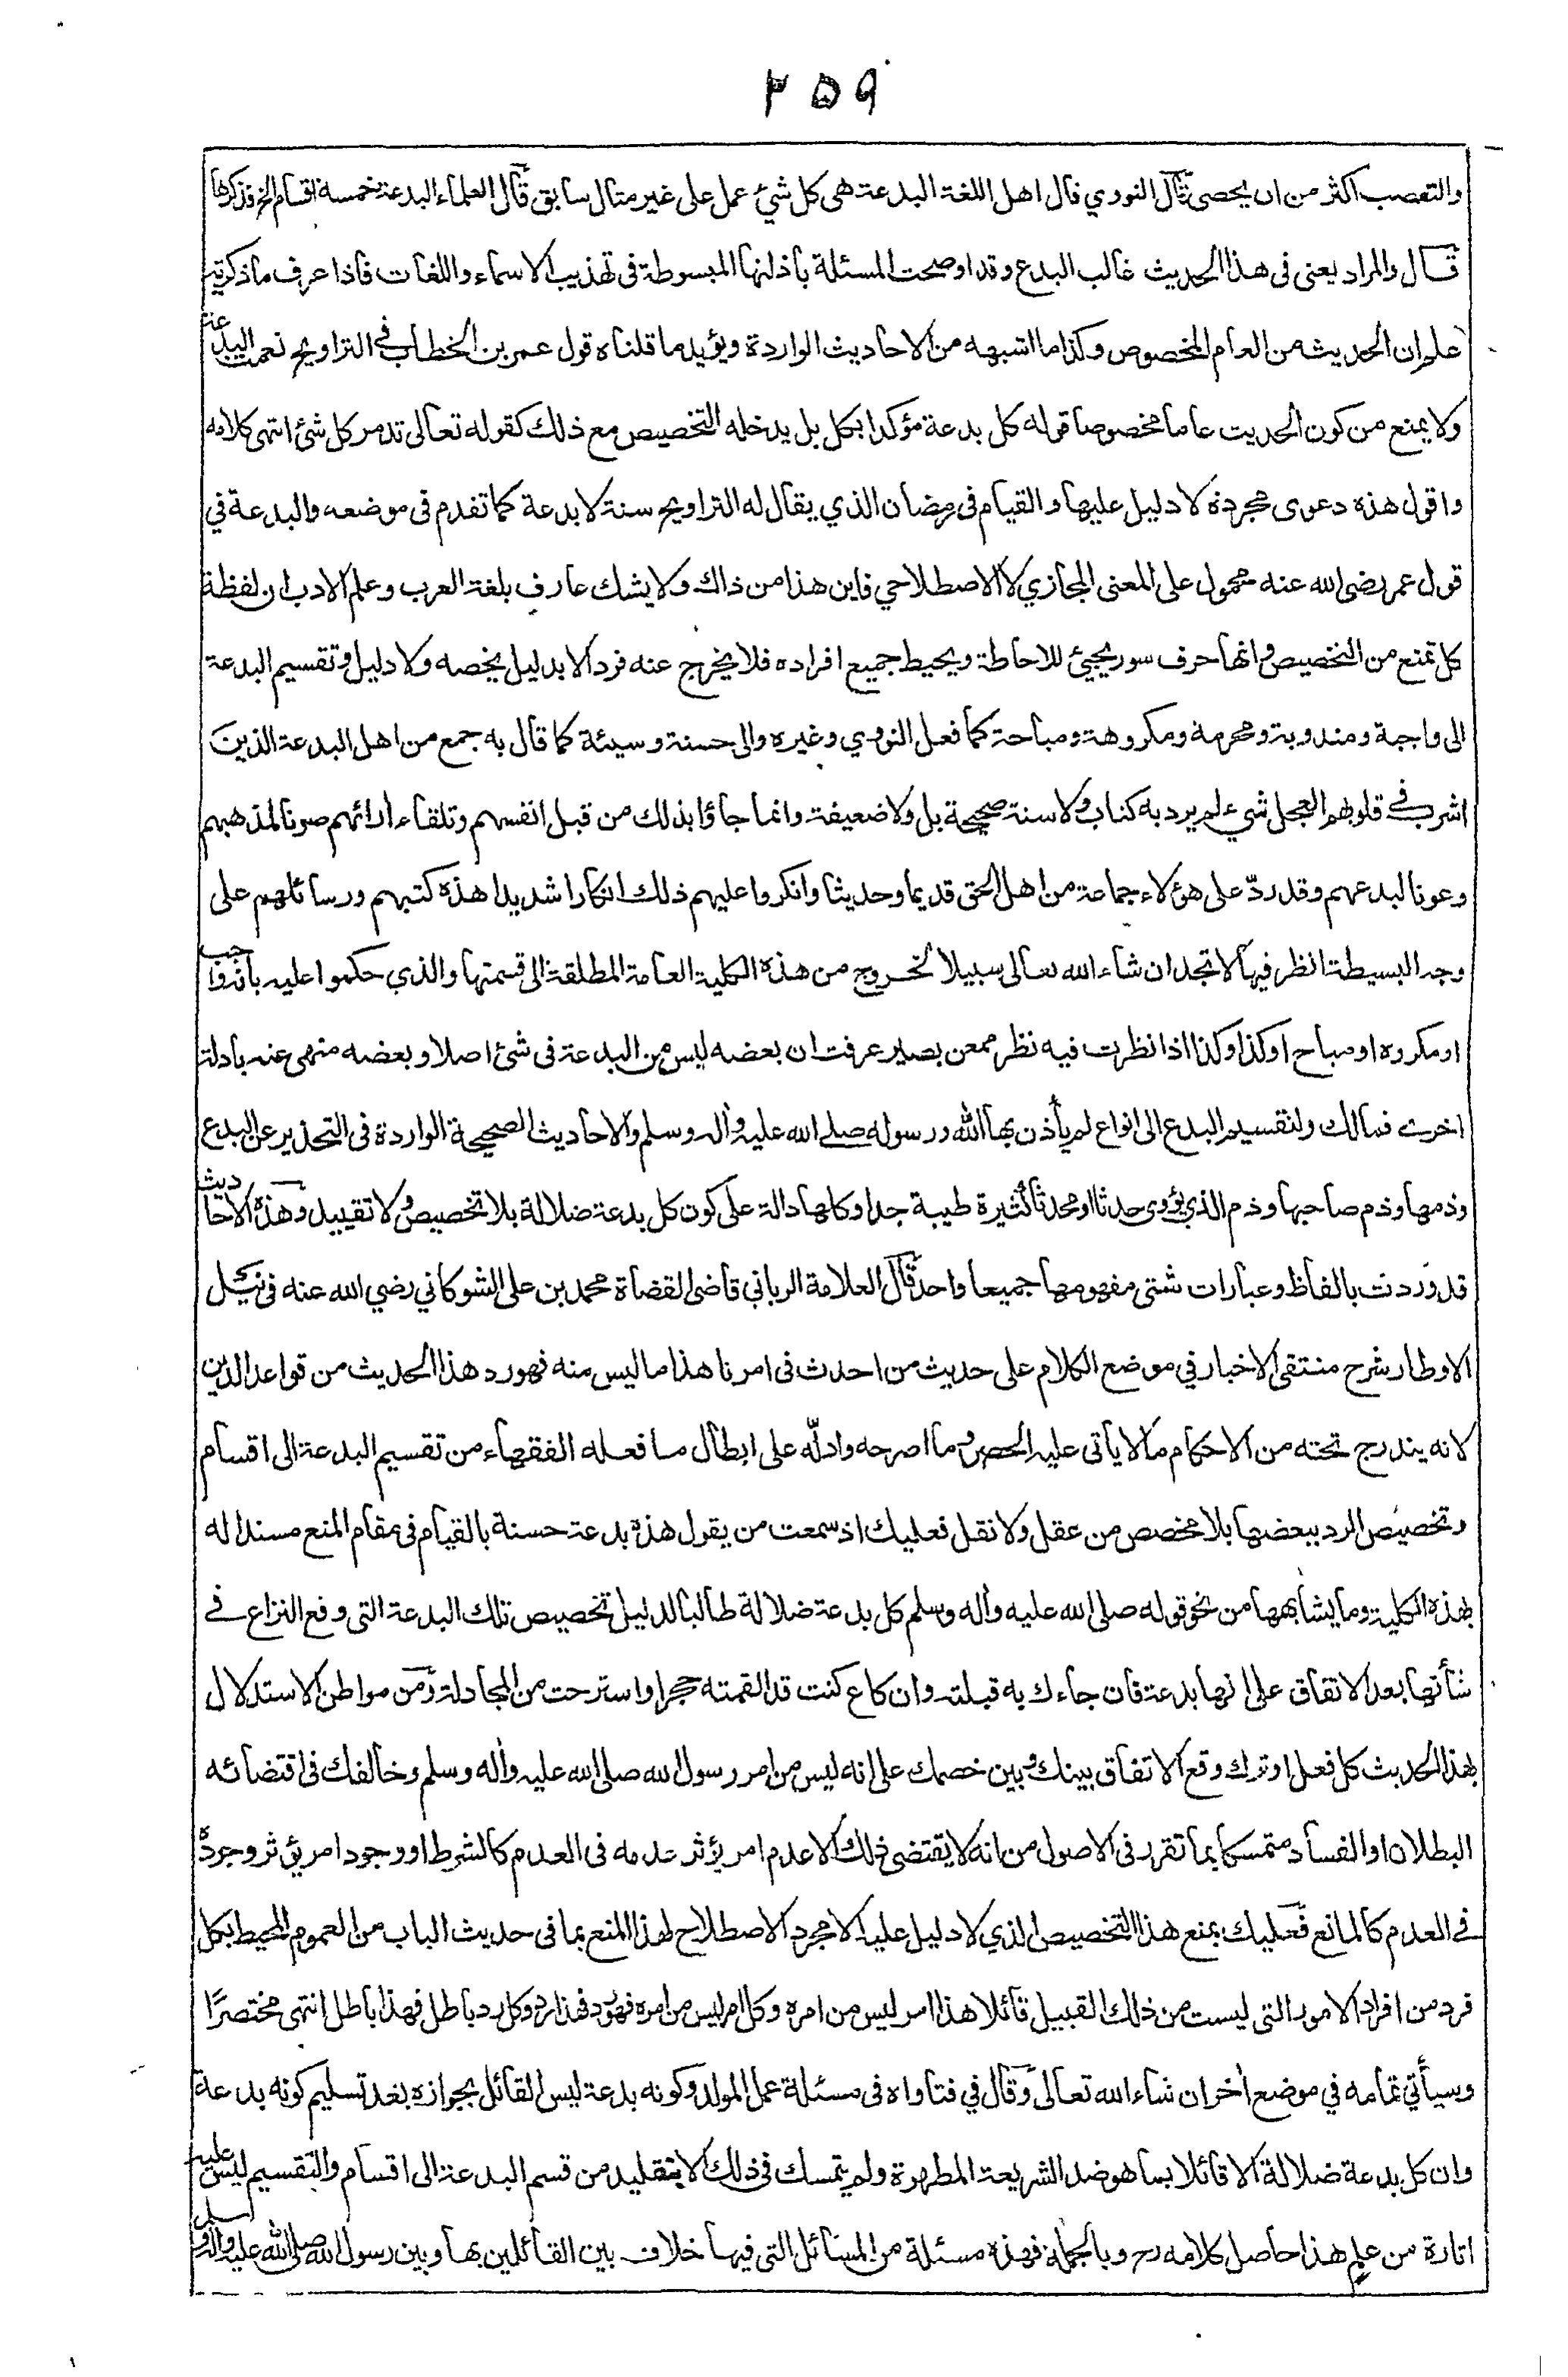 ٣٥٩
والتعصب اكثر من ان يحصى قال النووي قال اهل اللغة البدعة هى كل شئ عمل على غير مثال سابق قال العلماء البدعة خمسة اقسام الخ فذكرها
قال والمراد يعنى فى هذا الحديث غالب البدع وقد اوضحت المسئلة بأدلتها المبسوطة فى تهذيب الاسماء واللغات فاذا عرف ماذكرته
علم ان الحديث من العام المخصوص وكذا ما اشبهه من الاحاديث الواردة ويؤيد ما قلناه قول عمر بن الخطاب في التراويح نعمت البدعة
ولا يمنع من كون الحديث عاما مخصوصا قوله كل بدعة مؤكدا بكل بل يدخله التخصيص مع ذلك كقوله تعالى تدمر كل شئ انتهى كلامه
واقول هذه دعوى مجردة لا دليل عليها والقيام فى رمضان الذي يقال له التراويح سنة لا بدعة كما تقدم فى موضعه والبدعة في
قول عمر رضى الله عنه محمول على المعنى المجازي لا الاصطلاحي فاين هذا من ذاك ولا يشك عارف بلغة العرب وعلم الادب ان لفظة
كل تمنع من التخصيص وانها حرف سور يجيئ للاحاطة ويحيط جميع افراده فلا يخرج عنه فرد الا بدليل يخصه ولا دليل وتقسيم البدعة
الى واجبة ومندوبة ومحرمة ومكروهة ومباحة كما فعل النووي وغيره والى حسنة وسيئة كما قال به جمع من اهل البدعة الذين
اشرب في قلوبهم العجل شيء لم يرد به كتاب ولا سنة صحيحة بل ولا ضعيفة وانما جاؤا بذلك من قبل انفسهم وتلقاء ارائهم صونا لمذهبهم
وعونا لبدعهم وقد ردّ على هؤلاء جماعة من اهل الحق قديما وحديثا وانكروا عليهم ذلك انكارا شديدا هذه كتبهم ورسائلهم على
وجه البسيطة انظر فيها لا تجد ان شاء الله تعالى سبيلا لخروج من هذه الكلية العامة المطلقة الى قسمتها والذي حكموا عليه بأنه واجب
او مكروه او مباح او كذا وكذا اذا نظرت فيه نظر ممعن بصير عرفت ان بعضه ليس من البدعة فى شئ اصلا وبعضه منهى عنه بأدلة
اخرى فمالك ولتقسيم البدع الى انواع لم يأذن بها الله ورسوله صلے الله عليه واٰله وسلم والاحاديث الصحيحة الواردة فى التحذير عن البدع
وذمها وذم صاحبها وذم الذي يؤوى حدثا او محدثا كثيرة طيبة جدا وكلها دالة على كون كل بدعة ضلالة بلا تخصيص ولا تقييد وهذه الاحاديث
قد وردت بالفاظ وعبارات شتى مفهومها جميعا واحد قال العلامة الرباني قاضى القضاة محمد بن على الشوكاني رضي الله عنه فى نيل
الاوطار شرح منتقى الاخبار في موضع الكلام على حديث من احدث فى امرنا هذا ما ليس منه فهو رد هذا الحديث من قواعد الدين
لانه يندرج تحته من الاحكام مالا يأتى عليه الحصر وما اصرحه وادلّه على ابطال ما فعله الفقهاء من تقسيم البدعة الى اقسام
وتخصيص الرد ببعضها بلا مخصص من عقل ولا نقل فعليك اذ سمعت من يقول هذه بدعة حسنة بالقيام فى مقام المنع مسندا له
بهذه الكلية وما يشابهها من نحو قوله صلى الله عليه واٰله وسلم كل بدعة ضلالة طالبا لدليل تخصيص تلك البدعة التى وقع النزاع في
شأنها بعد الاتفاق على انها بدعة فان جاءك به قبلته وان كاع كنت قد القمته حجرا واسترحت من المجادلة ومن مواطن الاستدلال
بهذا الحديث كل فعل او ترك وقع الاتفاق بينك وبين خصمك على انه ليس من امر رسول الله صلى الله عليه واٰله وسلم وخالفك فى اقتضائه
البطلان او الفساد متمسكا بما تقرر فى الاصول من انه لا يقتضى ذلك الا عدم امر يؤثر عدمه فى العدم كالشرط او وجود امر يؤثر وجوده
في العدم كالمانع فعليك بمنع هذا التخصيص الذي لا دليل عليه الا مجرد الاصطلاح لهذا المنع بما فى حديث الباب من العموم المحيط بكل
فرد من افراد الامور التى ليست من ذلك القبيل قائلا هذا امر ليس من امره وكل امر ليس من امره فهو رد فهذا رد وكل رد باطل فهذا باطل انتهى مختصرًا
وسيأتي تمامه في موضع اٰخر ان شاء الله تعالى وقال في فتاواه فى مسئلة عمل المولد وكونه بدعة ليس القائل بجوازه بعد تسليم كونه بدعة
وان كل بدعة ضلالة الا قائلا بما هو ضد الشريعة المطهرة ولم يتمسك فى ذلك الا بتقليد من قسم البدعة الى اقسام والتقسيم ليس عليه
اثارة من علم هذا حاصل كلامه رح وبالجملة فهذه مسئلة من المسائل التى فيها خلاف بين القائلين بها وبين رسول الله صلى الله عليه واٰله وسلم